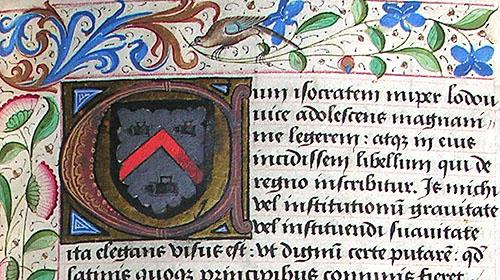 Cum isocratem nuper lodou
uice adolescens magnani-
me legerem: atq in eius
incidissem libellum qui de
regno inscribitur. Is michi
vel institutionū grauitate
vel instituendi suauitate
ita elegans visus est: vt dignū certe putarē: qd
satimis quoq principibus communis fieret